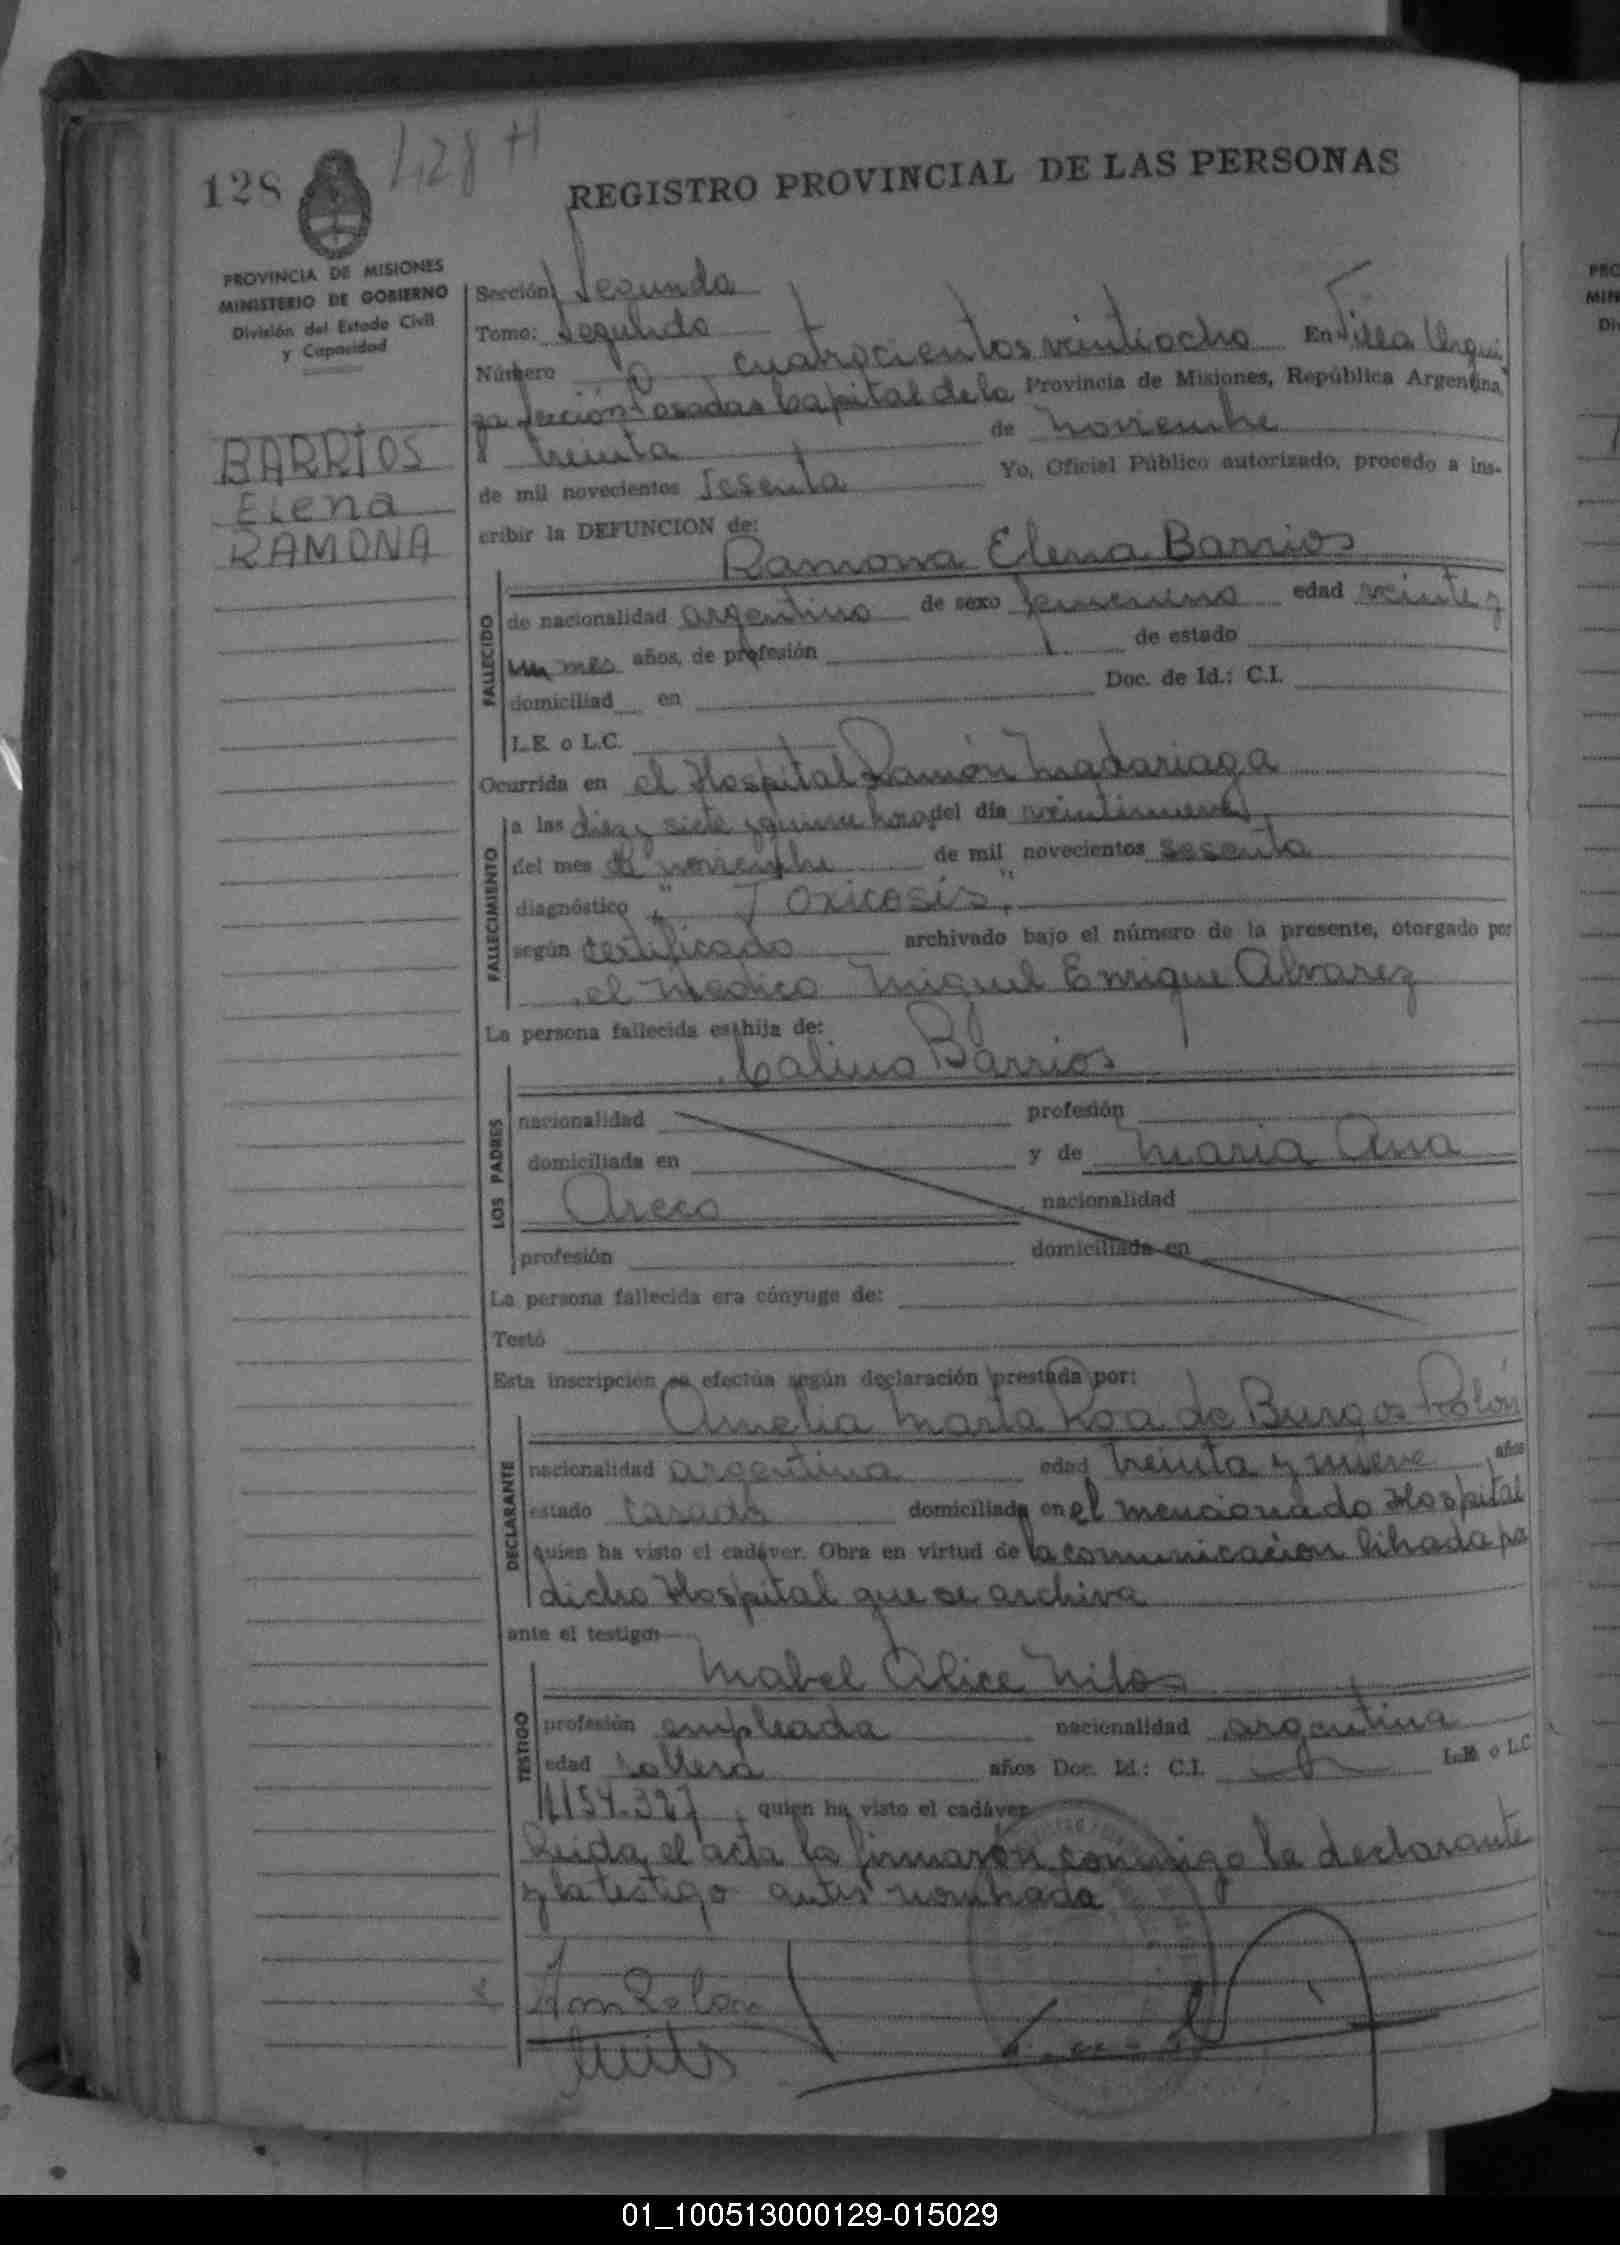 128 428 H
REGISTRO PROVINCIAL DE LAS PERSONAS
PROVINCIA DE MISIONES
MINISTERIO DE GOBIERNO
División del Estado Civil
y Capacidad
BARRIOS
Elena
RAMONA
Sección Segunda
Tomo: Segundo
Número cuatrocientos veintiocho En Villa Urqui
za sección Posadas Capital de la Provincia de Misiones, República Argentina,
a treinta de noviembre
de mil novecientos sesenta Yo, Oficial Público autorizado, procedo a ins-
cribir la DEFUNCION de:
Ramona Elena Barrios
FALLECIDO
de nacionalidad argentina de sexo femenino edad veinte y
un mes años, de profesión de estado
domiciliad en Doc. de Id.: C.I.
L.E. o L.C.
Ocurrida en el Hospital Ramón Madariaga
FALLECIMIENTO
a las diez y siete y quince horas del día veintinueve
del mes de noviembre de mil novecientos sesenta
diagnóstico " Toxicosis"
según certificado archivado bajo el número de la presente, otorgado por
el Medico Miguel Enrique Alvarez
La persona fallecida es hija de:
LOS PADRES
Calino Barrios
nacionalidad profesión
domiciliada en y de Maria Ana
Areco nacionalidad
profesión domiciliada en
La persona fallecida era cónyuge de:
Testó
Esta inscripción se efectúa según declaración prestada por:
DECLARANTE
Amelia Marta Roa de Burgos Rolón
nacionalidad argentina edad treinta y nueve años
estado casada domiciliada en el mencionado Hospital
quien ha visto el cadáver. Obra en virtud de la comunicación librada por
dicho Hospital que se archiva
ante el testigo:
TESTIGO
Mabel Alice Nilos
profesión empleada nacionalidad argentina
edad soltera años Doc. Id.: C.I. L.E. o L.C.
1154.327, quien ha visto el cadáver
Leida el acta la firmaron conmigo la declarante
y la testigo antes nombrada
01_100513000129-015029